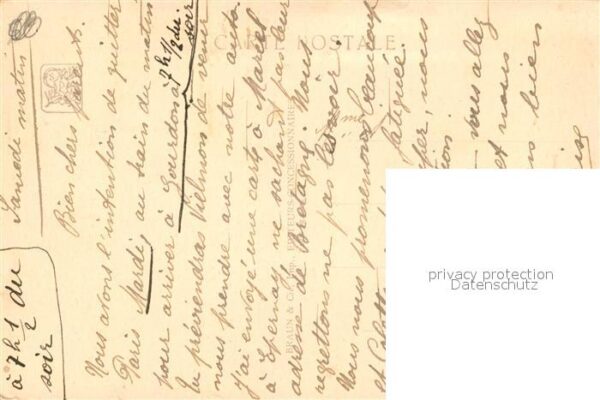 Samedi matin
Bien chers
Nous avons l'intention de quitter
Paris Mardi au train du matin
pour arriver à Gourdon à 7h 1/2 du soir
tu préviendras Vielmons de venir
nous prendre avec notre auto.
J'ai envoyé une carte à Marcel
à Epernay ne sachant pas leur
adresse de Bretagne. Nous
regrettons ne pas les voir
Nous nous promenons beaucoup
et
fatiguée
nous
vous allez
et nous
bien
à 7h 1/2 du
soir
CARTE POSTALE
BRAUN & Cie
EDITEURS CONCESSIONNAIRES
privacy protection
Datenschutz